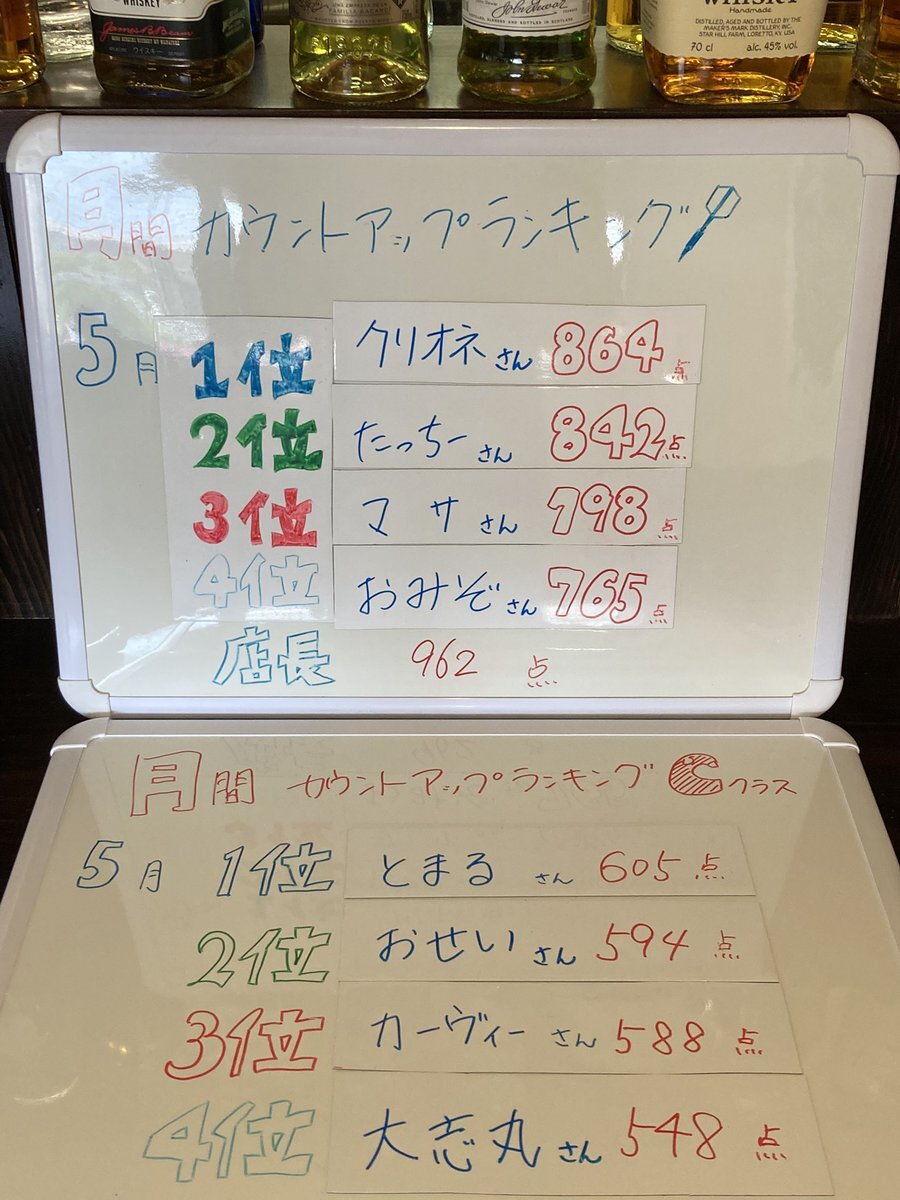 WHISKEY
James B. Beam
ウイスキー
DISTILLED, AGED AND BOTTLED BY THE
MAKER'S MARK DISTILLERY, INC.
STAR HILL FARM, LORETTO, KY. USA
WHISKY
Handmade
70 cl alc. 45% vol.
月間 カウントアップランキング
5月
1位 クリオネさん 864点
2位 たっちーさん 842点
3位 マサさん 798点
4位 おみぞさん 765点
店長 962点
月間 カウントアップランキング Cクラス
5月 1位 とまるさん 605点
2位 おせいさん 594点
3位 カーヴィーさん 588点
4位 大志丸さん 548点